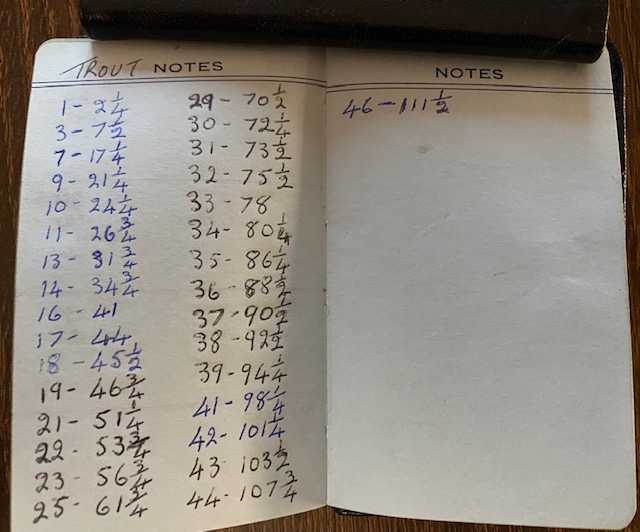 TROUT NOTES
1 - 2 1/4
3 - 7 1/2
7 - 17 1/4
9 - 21 1/4
10 - 24 1/4
11 - 26 3/4
13 - 31 3/4
14 - 34 3/4
16 - 41
17 - 44
18 - 45 1/2
19 - 46 3/4
21 - 51 1/4
22 - 53 3/4
23 - 56 3/4
25 - 61 3/4
29 - 70 1/2
30 - 72 1/4
31 - 73 1/2
32 - 75 1/2
33 - 78
34 - 80 1/4
35 - 86 1/4
36 - 88 1/2
37 - 90 1/2
38 - 92 1/2
39 - 94 1/4
41 - 98 1/4
42 - 101 1/4
43 - 103 1/2
44 - 107 3/4
NOTES
46 - 111 1/2